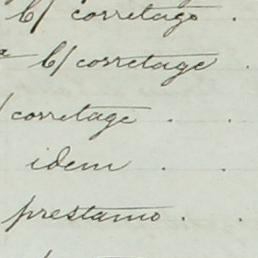 b/ corretage .
b/ corretage .
/ corretage . .
idem . .
prestamo . .